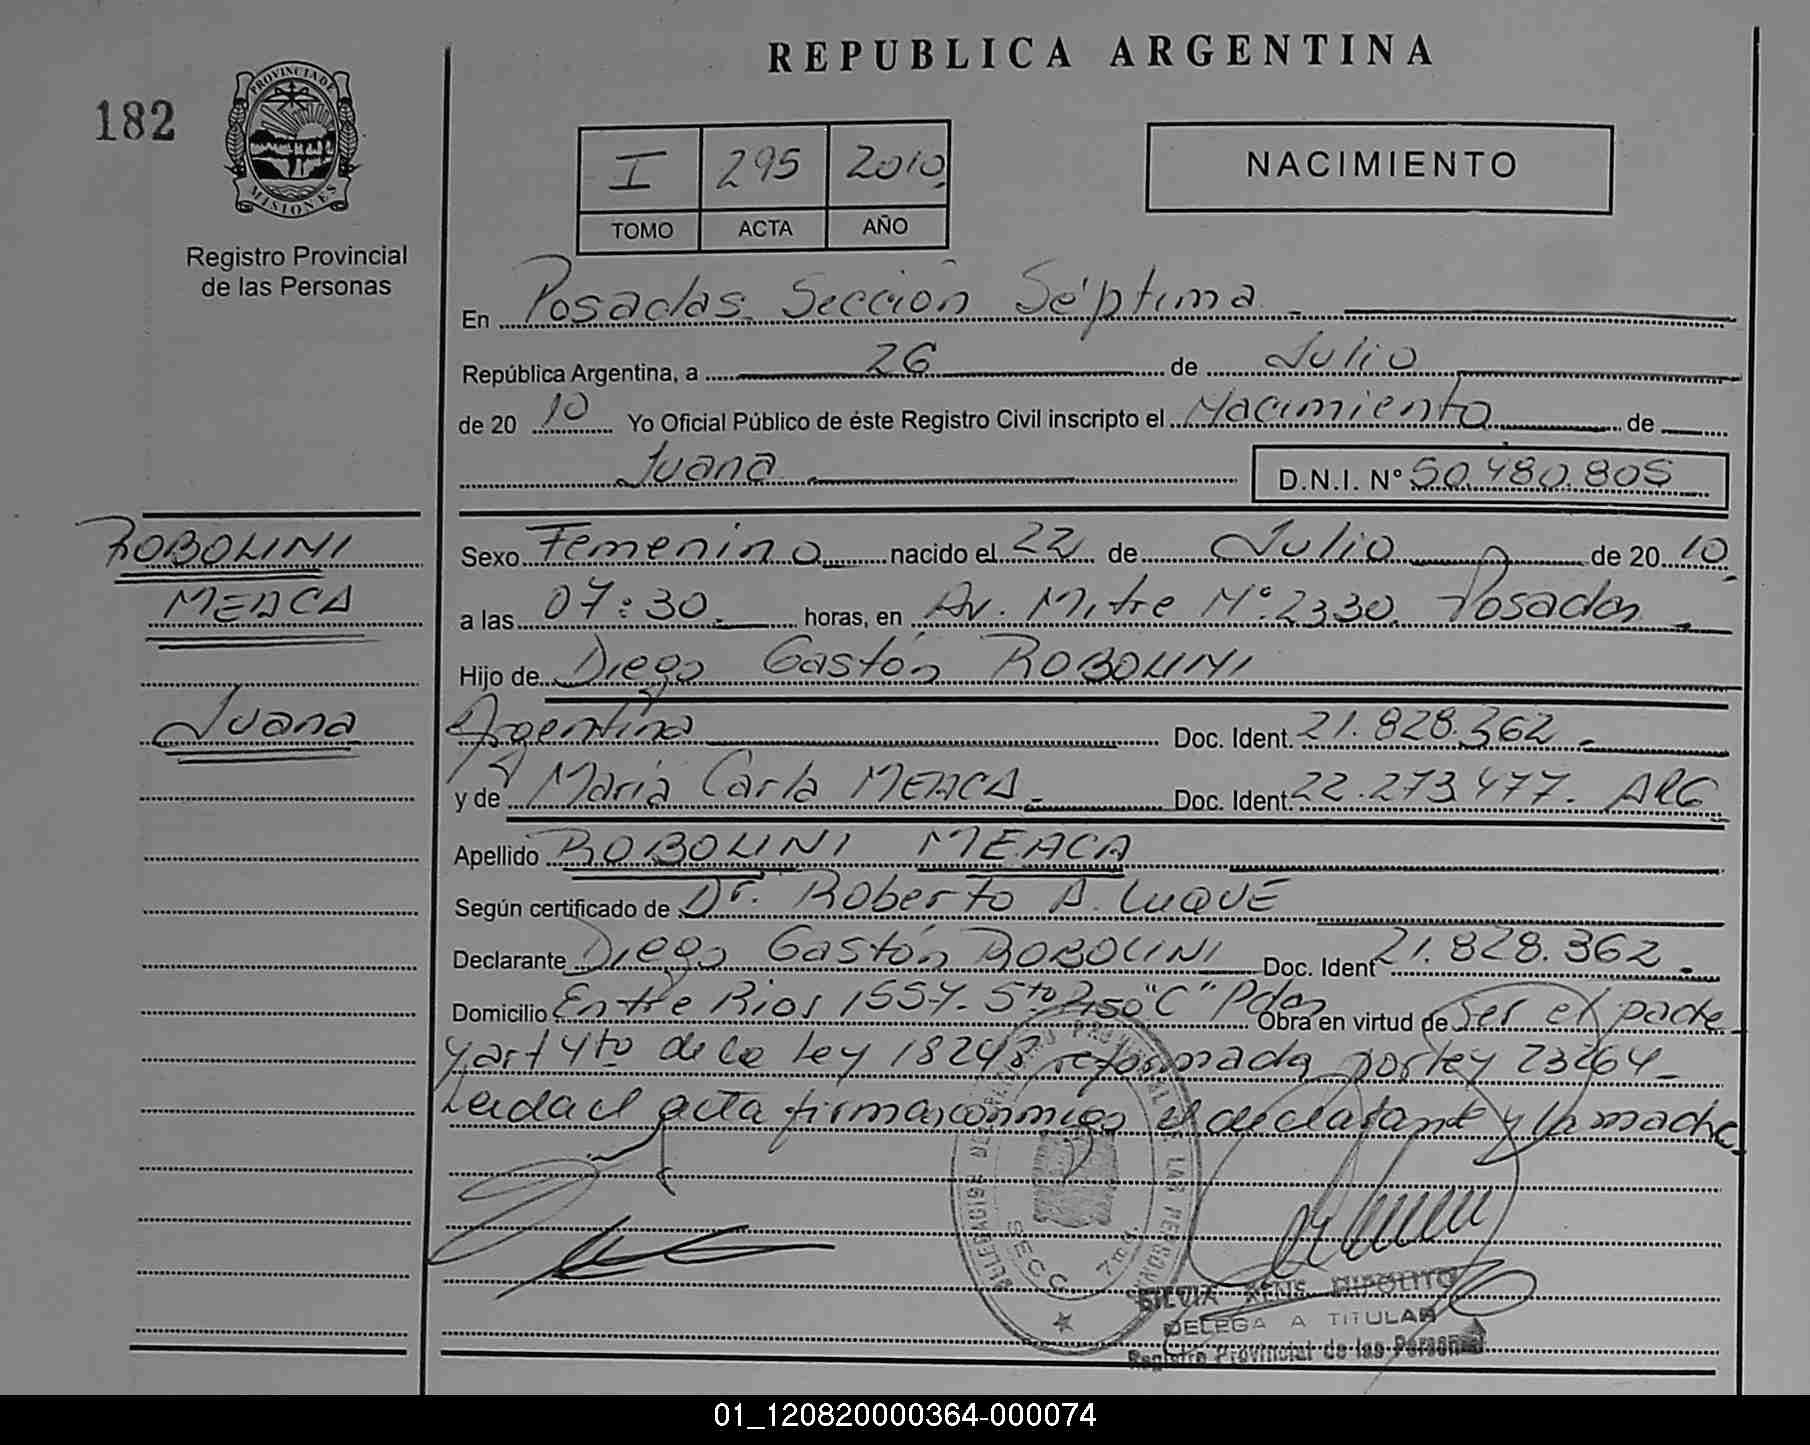 REPUBLICA ARGENTINA
182
PROVINCIA DE MISIONES
Registro Provincial
de las Personas
I 295 2010
TOMO ACTA AÑO
NACIMIENTO
En Posadas Sección Séptima
República Argentina, a 26 de Julio
de 20 10 Yo Oficial Público de éste Registro Civil inscripto el Nacimiento de
Juana D.N.I. N° 50.480.805
ROBOLINI
MEACA
Juana
Sexo Femenino nacido el 22 de Julio de 20 10
a las 07:30 horas, en Av. Mitre N° 2330. Posadas
Hijo de Diego Gastón ROBOLINI
Argentina Doc. Ident. 21.828.362
y de María Carla MEACA Doc. Ident. 22.273.477. ARG
Apellido ROBOLINI MEACA
Según certificado de Dr. Roberto A. LUQUE
Declarante Diego Gastón ROBOLINI Doc. Ident 21.828.362.
Domicilio Entre Rios 1557. 5to Piso "C" Pdas Obra en virtud de ser el padre
y art 4to de la ley 18248 reformada por ley 23264
Leida el acta firman conmigo el declarante y la madre
SECC 7ma
SILVIA HIPOLITO
DELEGADA TITULAR
Registro Provincial de las Personas
01_120820000364-000074